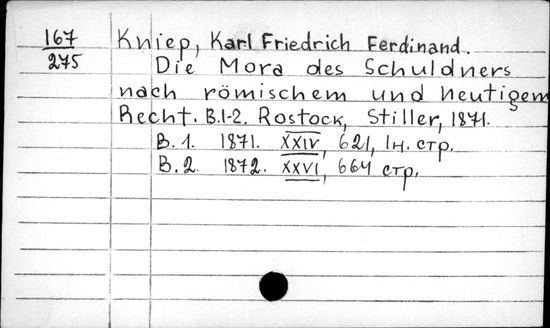 167
275
Kniep, Karl Friedrich Ferdinand.
Die Mora des Schuldners
nach römischem und heutigem
Recht. B.1-2. Rostock, Stiller, 1871.
B. 1. 1871. XXIV, 621, 1н. стр.
B. 2. 1872. XXVI, 664 стр.